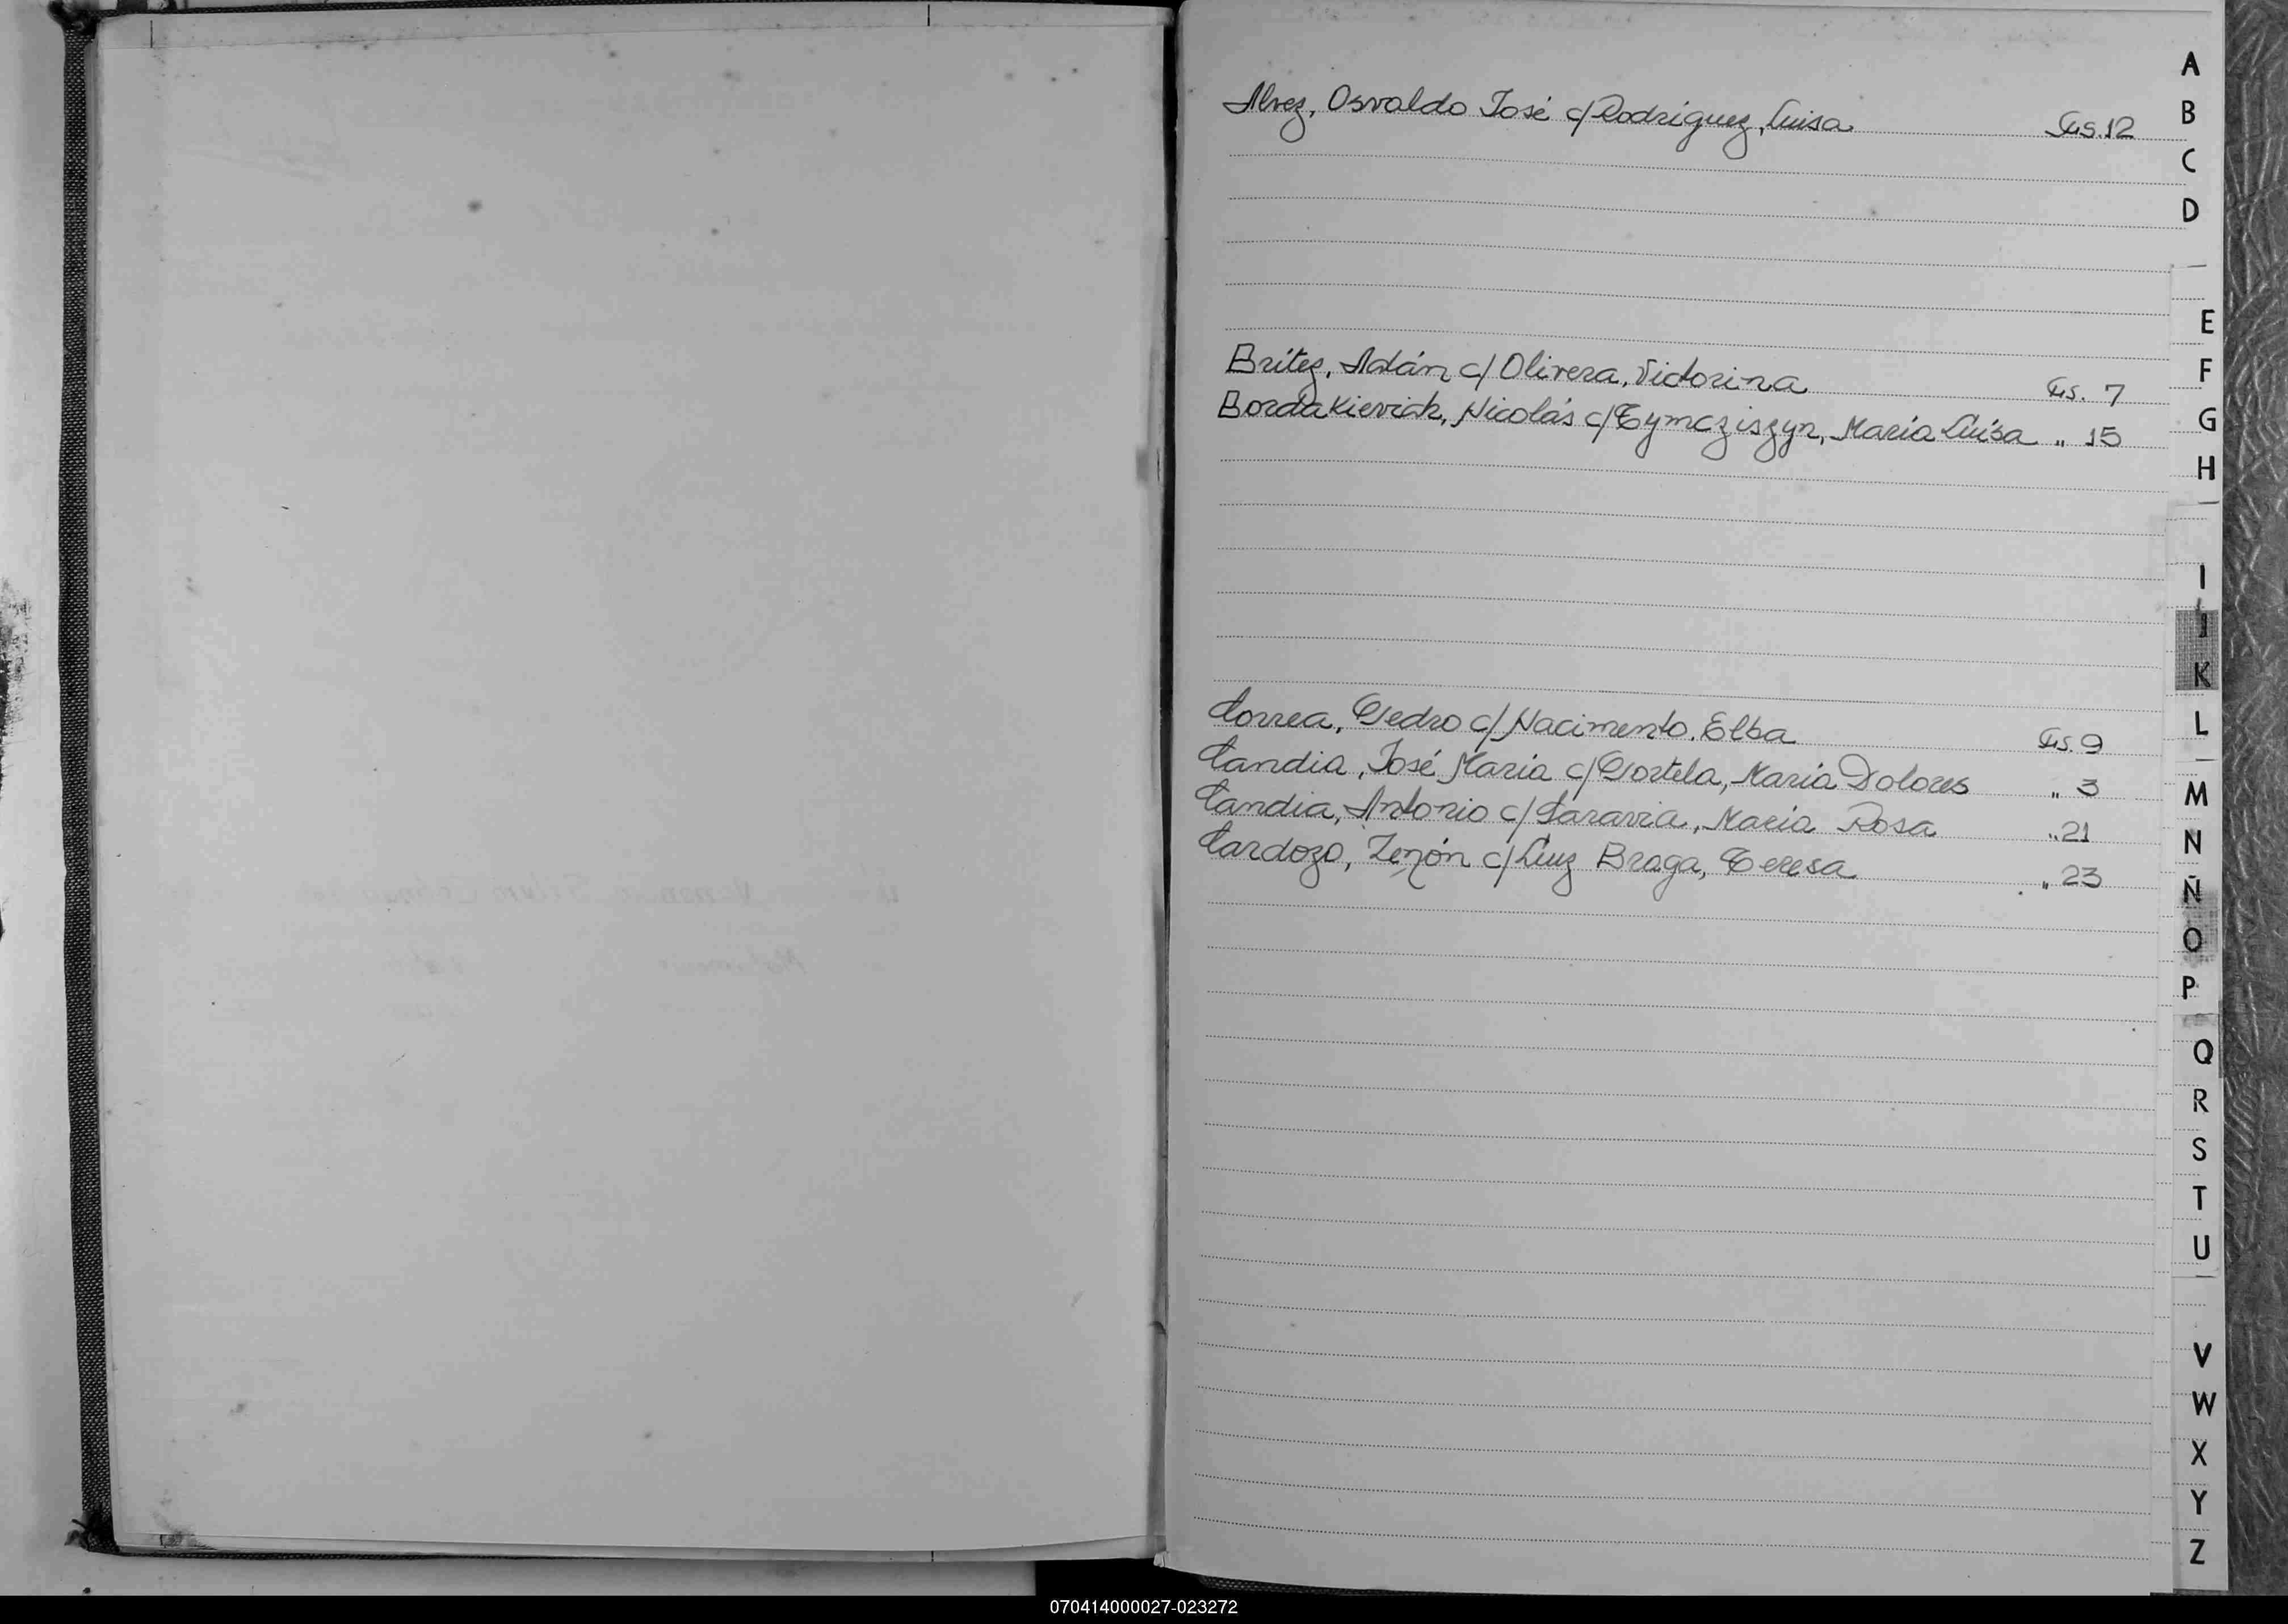 Alvez, Osvaldo José c/ Rodriguez, Luisa Fs. 12
Britez, Adán c/ Olivera, Victorina Fs. 7
Bordakievich, Nicolás c/ Tymcziszyn, María Luisa " 15
Correa, Pedro c/ Nacimento, Elba Fs. 9
Candia, José María c/ Portela, María Dolores " 3
Candia, Antonio c/ Saravia, María Rosa " 21
Cardozo, Zenón c/ Luz Braga, Teresa " 23
A
B
C
D
E
F
G
H
I
J
K
L
M
N
Ñ
O
P
Q
R
S
T
U
V
W
X
Y
Z
070414000027-023272